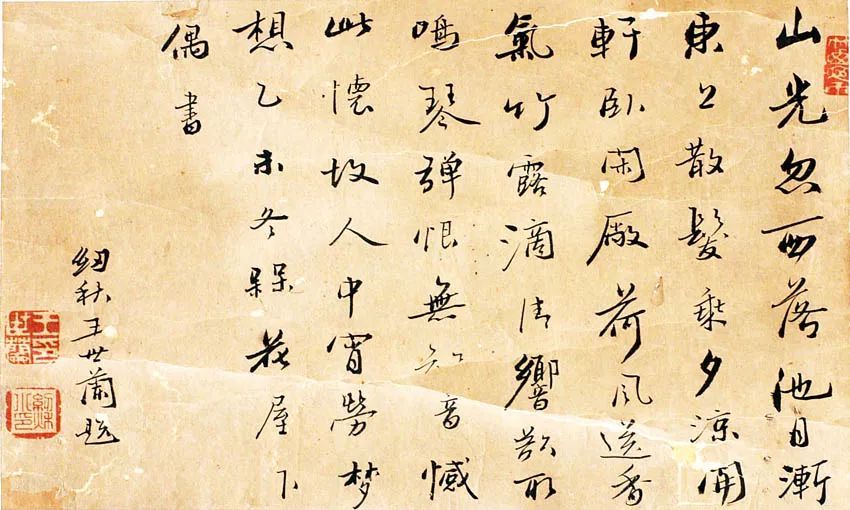 山光忽西落池月漸
東上散髮乘夕涼開
軒臥閑敞荷風送香
氣竹露滴清響欲取
鳴琴彈恨無知音憾
此懷故人中宵勞梦
想乙未冬槑花屋下
偶書
紉秋王世蘭題